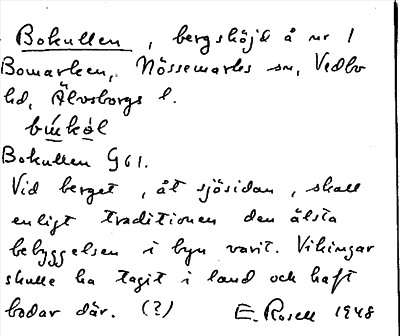 Bokullen, bergshöjd å nr 1
Bomarken, Nössemarks sn, Vedbo
hd, Älvsborgs l.
bu̇kȧl
Bokullen G 61.
Vid berget, åt sjösidan, skall
enligt traditionen den älsta
bebyggelsen i byn varit. Vikingar
skulle ha tagit i land och haft
bodar där. (?) E. Rosell 1948